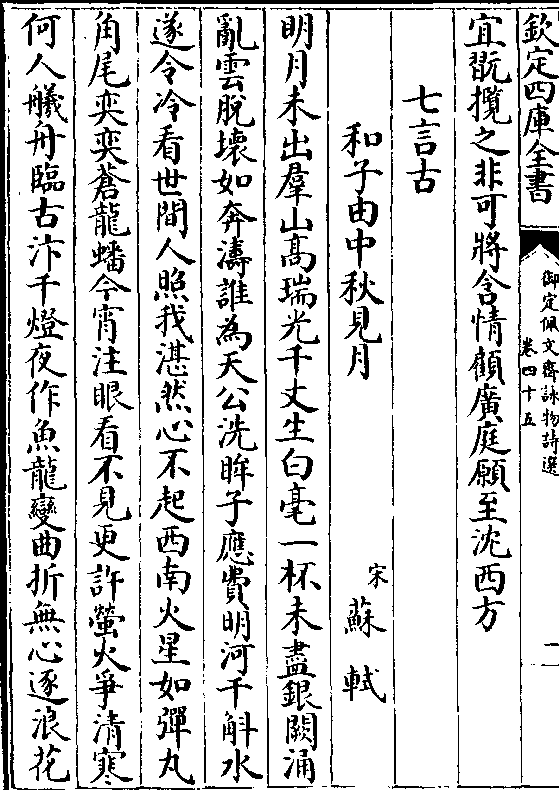 欽定四庫全書
御定佩文齋詠物詩選
卷四十五
一
宜翫攬之非可將含情顧廣庭願至沈西方
七言古
和子由中秋見月
宋 蘇軾
明月未出羣山髙瑞光千丈生白毫一杯未盡銀闕涌
亂雲脫壊如奔濤誰為天公洗眸子應費明河千斛水
遂令冷看世間人照我湛然心不起西南火星如彈丸
角尾奕奕蒼龍蟠今宵注眼看不見更許螢火爭清寒
何人艤舟臨古汴千燈夜作魚龍變曲折無心逐浪花